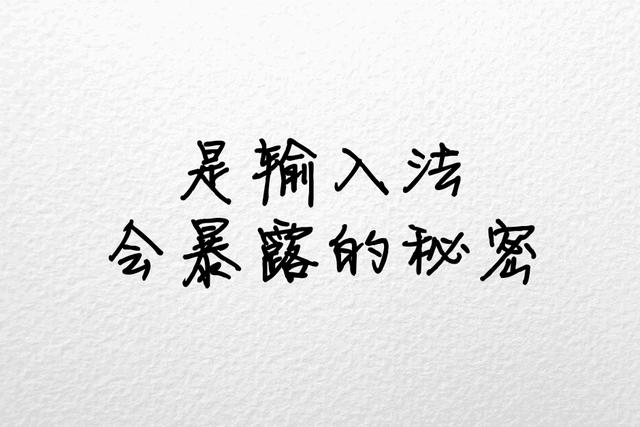 是输入法
会暴露的秘密